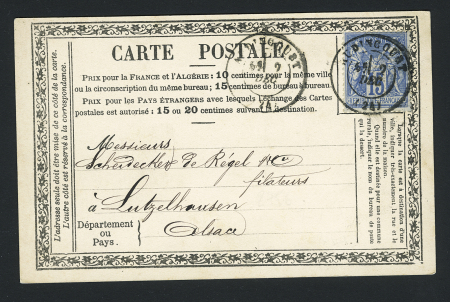 CARTE POSTALE
PRIX POUR LA FRANCE et l'ALGÉRIE: 10 centimes pour la même ville
ou la circonscription du même bureau; 15 centimes de bureau à bureau.
PRIX POUR LES PAYS ÉTRANGERS avec lesquels l'échange des Cartes
postales est autorisé: 15 ou 20 centimes suivant la destination.
L'adresse seule doit être mise de ce côté.
L'autre côté est réservé à la correspondance.
DEC
15
Messieurs
de Régel
filateurs
à Lutzelhausen
Alsace
Département
ou
Pays.